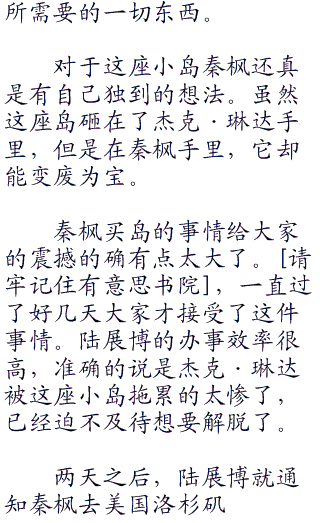 所需要的一切东西。
对于这座小岛秦枫还真
是有自己独到的想法。虽然
这座岛砸在了杰克·琳达手
里，但是在秦枫手里，它却
能变废为宝。
秦枫买岛的事情给大家
的震撼的确有点太大了。[请
牢记住有意思书院]，一直过
了好几天大家才接受了这件
事情。陆展博的办事效率很
高，准确的说是杰克·琳达
被这座小岛拖累的太惨了，
已经迫不及待想要解脱了。
两天之后，陆展博就通
知秦枫去美国洛杉矶